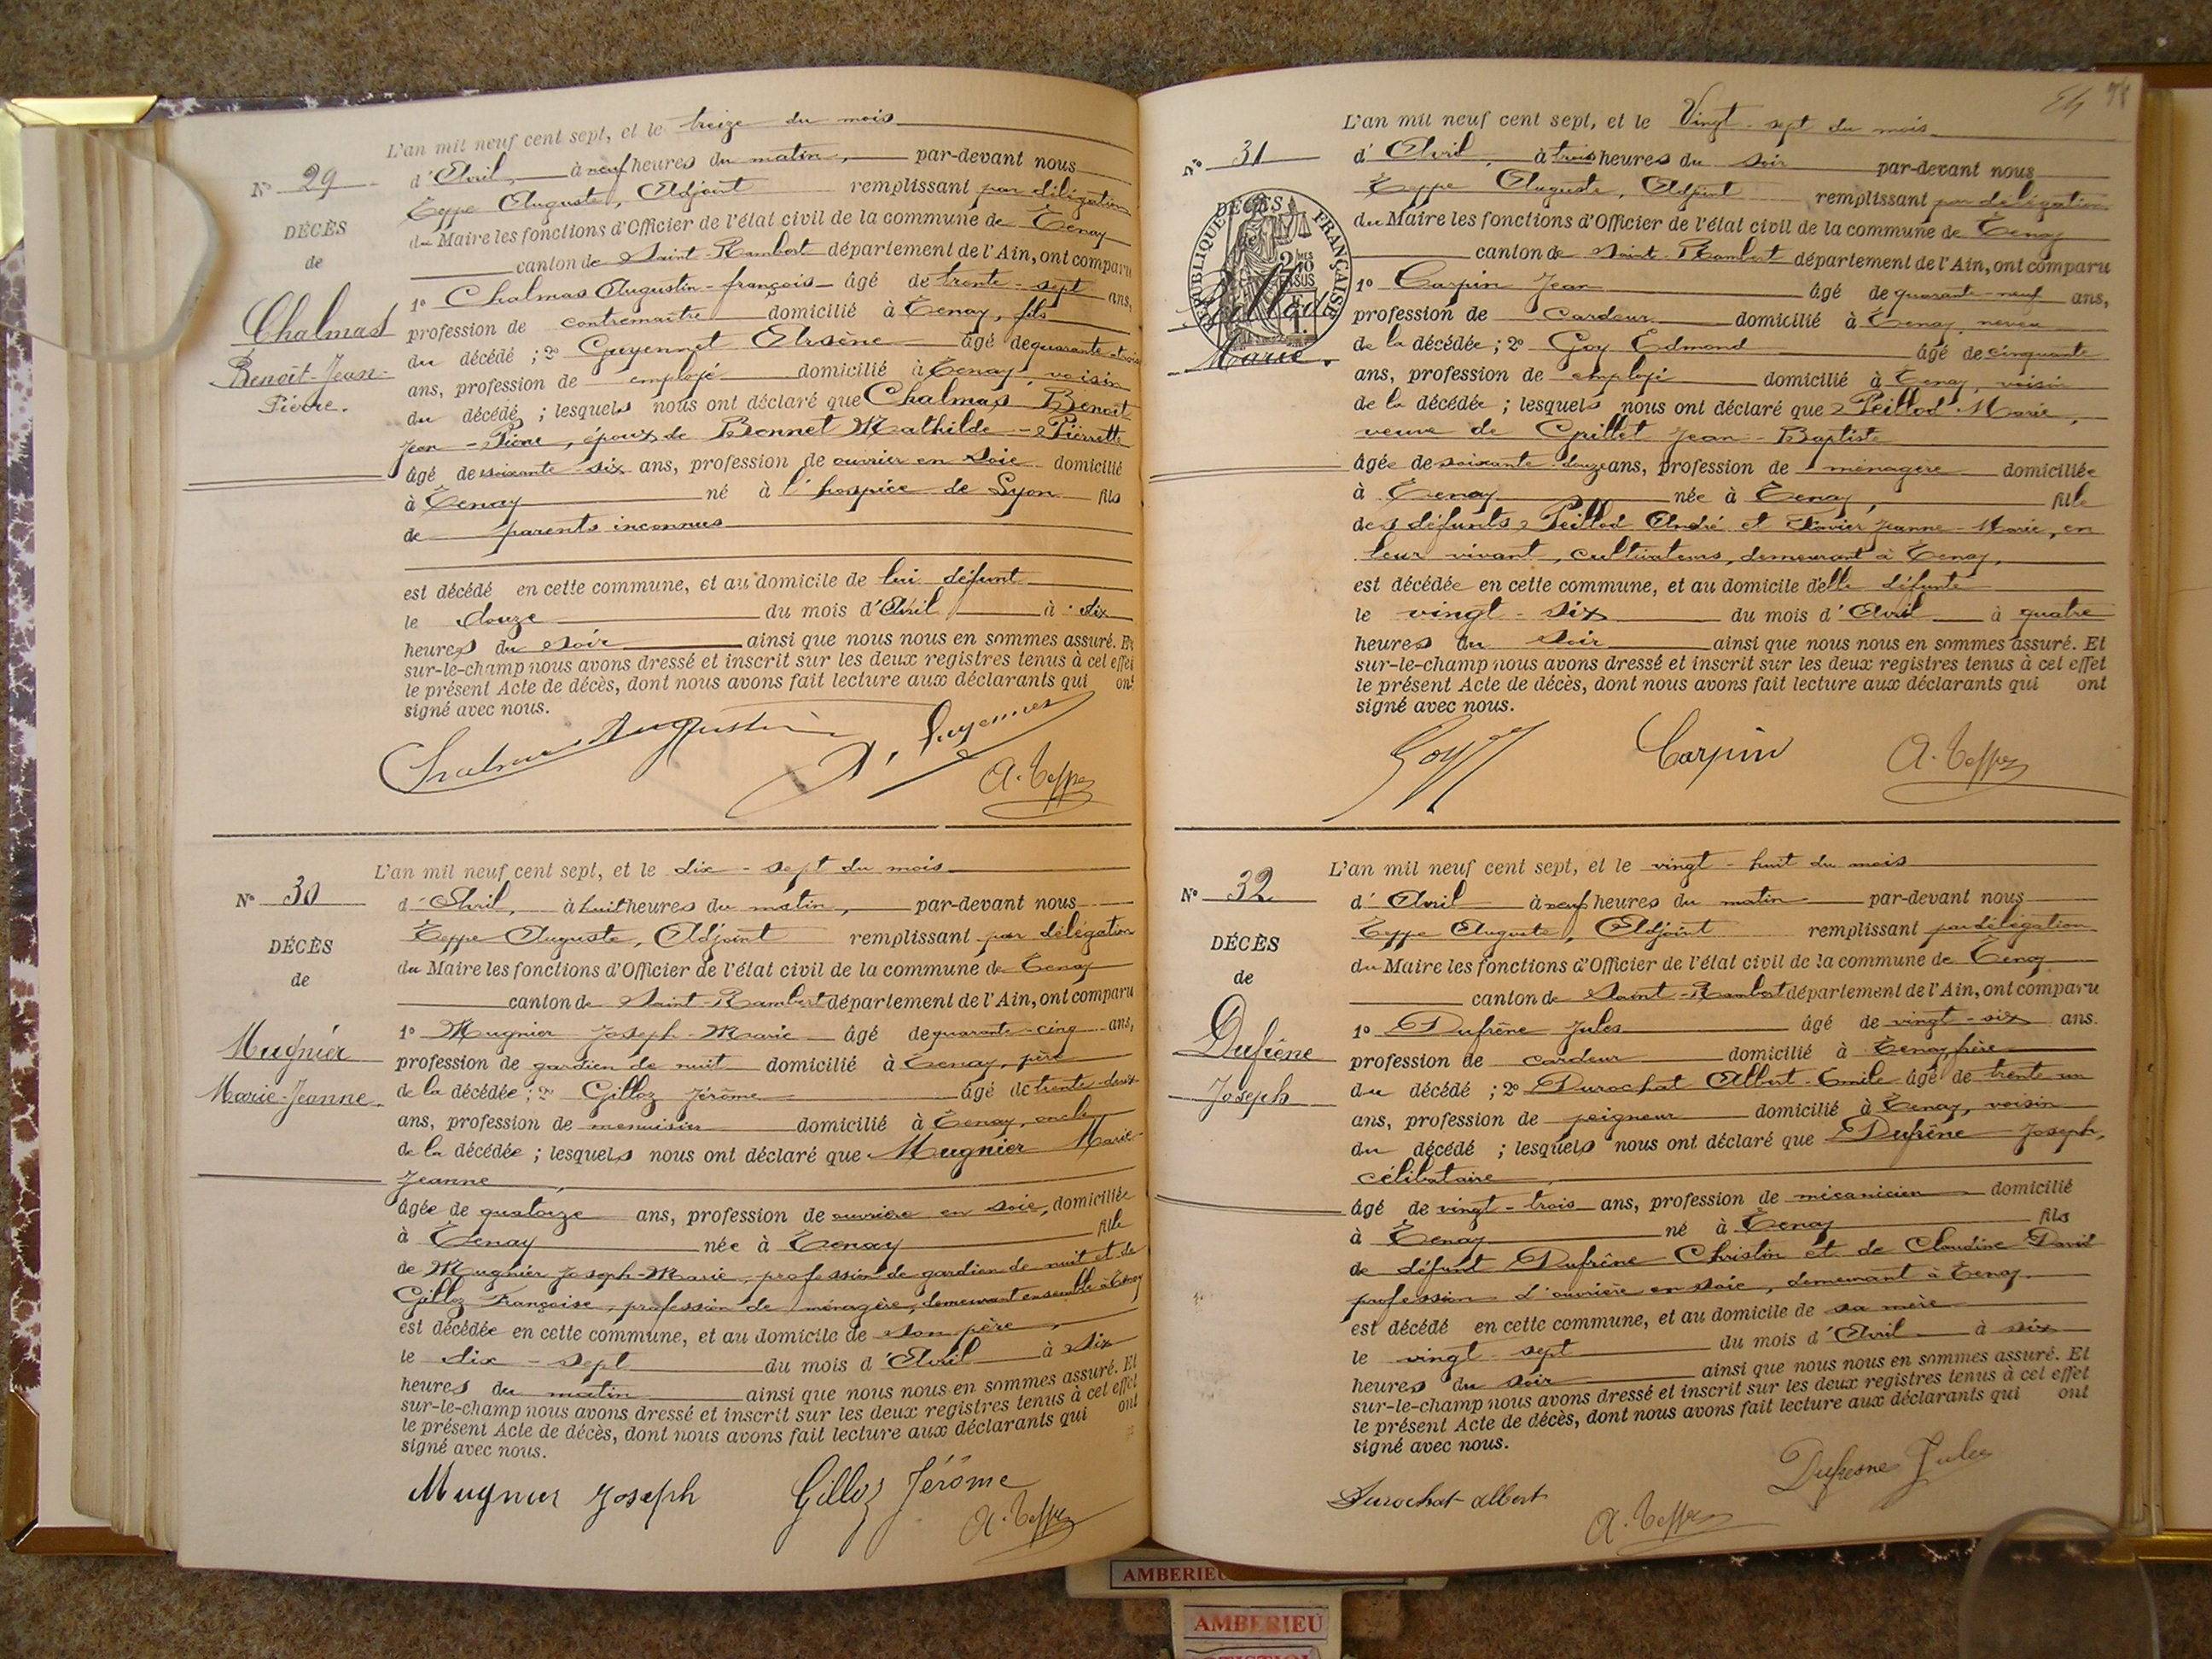 L'an mil neuf cent sept, et le treize du mois
N° 29
d'Avril, à neuf heures du matin, par-devant nous
Teppe Auguste, Adjoint remplissant par délégation
DÉCÈS
du Maire les fonctions d'Officier de l'état civil de la commune de Tenay
de
canton de Saint-Rambert département de l'Ain, ont comparu
Chalmas
Benoit-Jean-
Pierre.
1° Chalmas Augustin-françois âgé de trente-sept ans,
profession de contremaître domicilié à Tenay, fils
du décédé ; 2° Guyennet Arsène âgé de quarante-trois
ans, profession de employé domicilié à Tenay, voisin
du décédé ; lesquels nous ont déclaré que Chalmas Benoit
Jean-Pierre, époux de Bonnet Mathilde-Pierrette
âgé de soixante-six ans, profession de ouvrier en soie domicilié
à Tenay né à l'hospice de Lyon fils
de parents inconnus
est décédé en cette commune, et au domicile de lui défunt
le douze du mois d'Avril à dix
heures du soir ainsi que nous nous en sommes assuré. Et
sur-le-champ nous avons dressé et inscrit sur les deux registres tenus à cet effet
le présent Acte de décès, dont nous avons fait lecture aux déclarants qui ont
signé avec nous.
Chalmas Augustin A. Guyennet
A. Teppe
L'an mil neuf cent sept, et le dix-sept du mois
N° 30
d'Avril, à huit heures du matin, par-devant nous
Teppe Auguste, Adjoint remplissant par délégation
DÉCÈS
du Maire les fonctions d'Officier de l'état civil de la commune de Tenay
de
canton de Saint-Rambert département de l'Ain, ont comparu
Mugnier
Marie-Jeanne.
1° Mugnier Joseph-Marie âgé de quarante-cinq ans,
profession de gardien de nuit domicilié à Tenay, père
de la décédée ; 2° Gilloz Jérôme âgé de trente-deux
ans, profession de menuisier domicilié à Tenay, oncle
de la décédée ; lesquels nous ont déclaré que Mugnier Marie-
Jeanne,
âgée de quatorze ans, profession de ouvrière en soie, domiciliée
à Tenay née à Tenay fille
de Mugnier Joseph-Marie, profession de gardien de nuit et de
Gilloz Françoise, profession de ménagère, demeurant ensemble à Tenay
est décédée en cette commune, et au domicile de son père,
le dix-sept du mois d'Avril à six
heures du matin ainsi que nous nous en sommes assuré. Et
sur-le-champ nous avons dressé et inscrit sur les deux registres tenus à cet effet
le présent Acte de décès, dont nous avons fait lecture aux déclarants qui ont
signé avec nous.
Mugnier Joseph Gilloz Jérôme
A. Teppe
78
L'an mil neuf cent sept, et le Vingt-sept du mois
N° 31
d'Avril, à trois heures du soir par-devant nous
Teppe Auguste, Adjoint remplissant par délégation
DÉCÈS
de
RÉPUBLIQUE FRANÇAISE
2/10 EN SUS
Peillod
Marie.
du Maire les fonctions d'Officier de l'état civil de la commune de Tenay
canton de Saint-Rambert département de l'Ain, ont comparu
1° Carpin Jean âgé de quarante-neuf ans,
profession de Cardeur domicilié à Tenay, neveu
de la décédée ; 2° Goy Edmond âgé de cinquante
ans, profession de employé domicilié à Tenay, voisin
de la décédée ; lesquels nous ont déclaré que Peillod Marie,
veuve de Grillet Jean-Baptiste
âgée de soixante-douze ans, profession de ménagère domiciliée
à Tenay née à Tenay, fille
des défunts Peillod André et Tavier Jeanne-Marie, en
leur vivant, cultivateurs, demeurant à Tenay,
est décédée en cette commune, et au domicile d'elle défunte
le vingt-six du mois d'Avril à quatre
heures du soir ainsi que nous nous en sommes assuré. Et
sur-le-champ nous avons dressé et inscrit sur les deux registres tenus à cet effet
le présent Acte de décès, dont nous avons fait lecture aux déclarants qui ont
signé avec nous.
Goy Carpin A. Teppe
L'an mil neuf cent sept, et le vingt-huit du mois
N° 32
d'Avril à neuf heures du matin par-devant nous
Teppe Auguste, Adjoint remplissant par délégation
DÉCÈS
du Maire les fonctions d'Officier de l'état civil de la commune de Tenay
de
canton de Saint-Rambert département de l'Ain, ont comparu
Dufrêne
Joseph
1° Dufrêne Jules âgé de vingt-six ans.
profession de cardeur domicilié à Tenay, frère
du décédé ; 2° Durochat Albert-Emile âgé de trente un
ans, profession de peigneur domicilié à Tenay, voisin
du décédé ; lesquels nous ont déclaré que Dufrêne Joseph,
célibataire,
âgé de vingt-trois ans, profession de mécanicien domicilié
à Tenay né à Tenay fils
de défunt Dufrêne Christin et de Claudine David
profession d'ouvrière en soie, demeurant à Tenay.
est décédé en cette commune, et au domicile de sa mère
le vingt-sept du mois d'Avril à six
heures du soir ainsi que nous nous en sommes assuré. Et
sur-le-champ nous avons dressé et inscrit sur les deux registres tenus à cet effet
le présent Acte de décès, dont nous avons fait lecture aux déclarants qui ont
signé avec nous.
Dufresne Jules
Durochat albert
A. Teppe
AMBERIEU
AMBERIEU